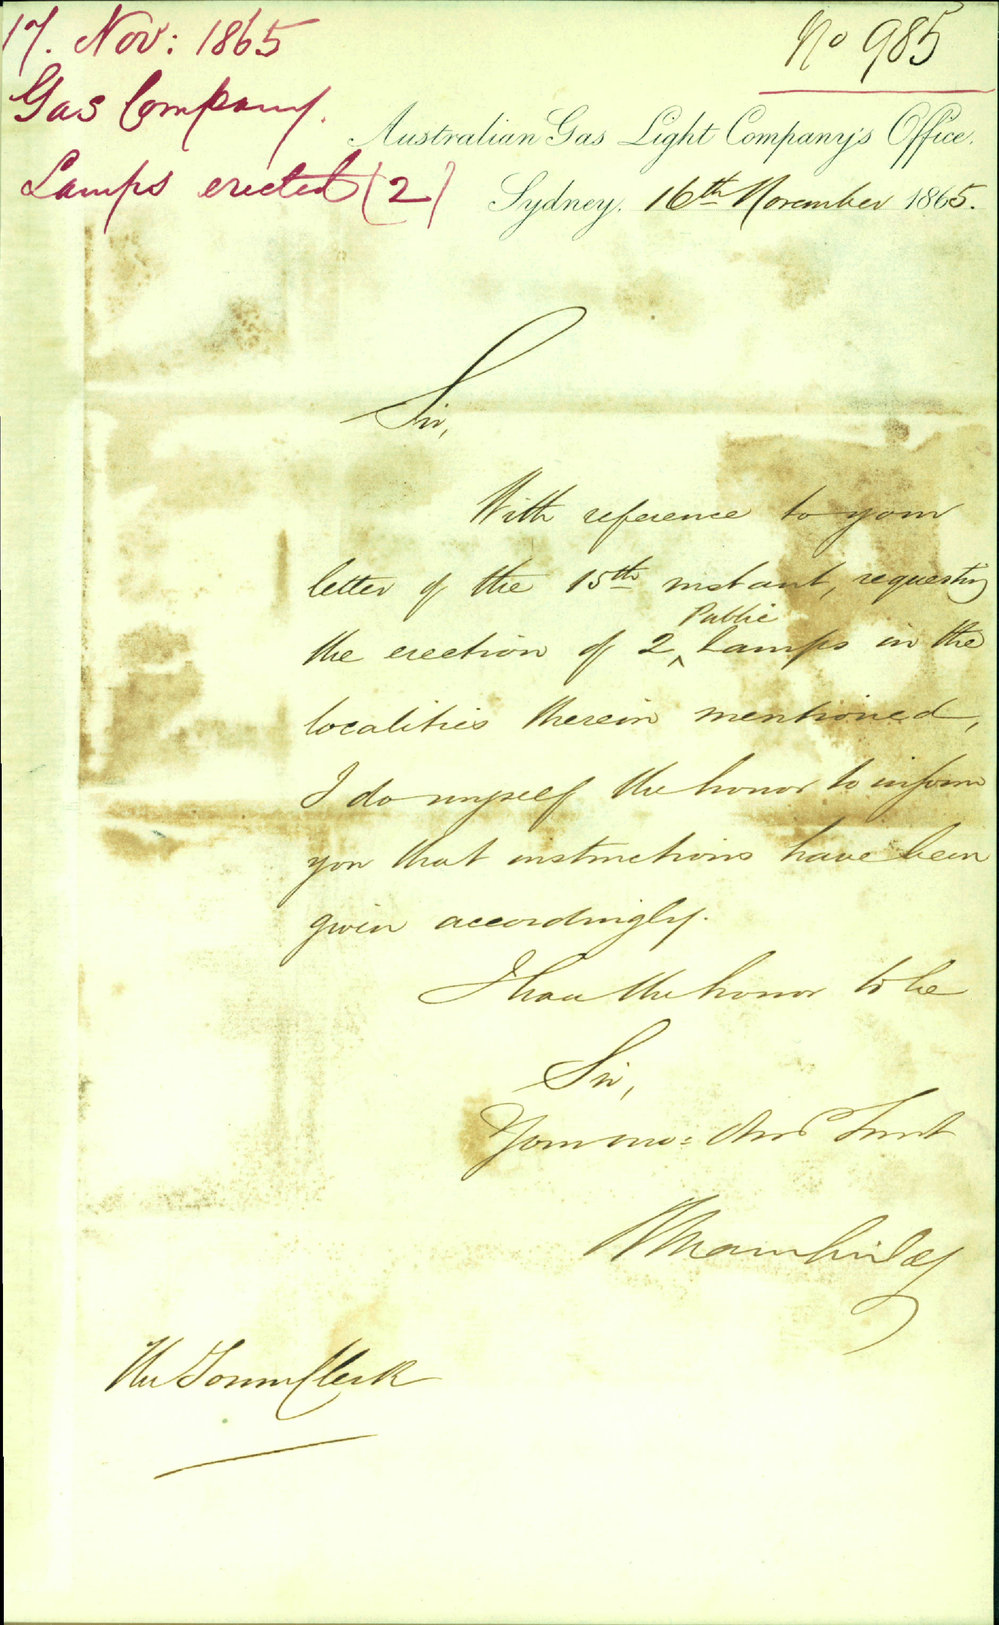 17. Nov: 1865
No 985
Gas Company.
Lamps erected (2)
Australian Gas Light Company's Office.
Sydney. 16th November 1865.
Sir,
With reference to your
letter of the 15th instant, requesting
the erection of 2 ^ Public Lamps in the
localities therein mentioned,
I do myself the honor to inform
you that instructions have been
given accordingly.
I have the honor to be
Sir,
Your mo: Obed Servt
The Town Clerk